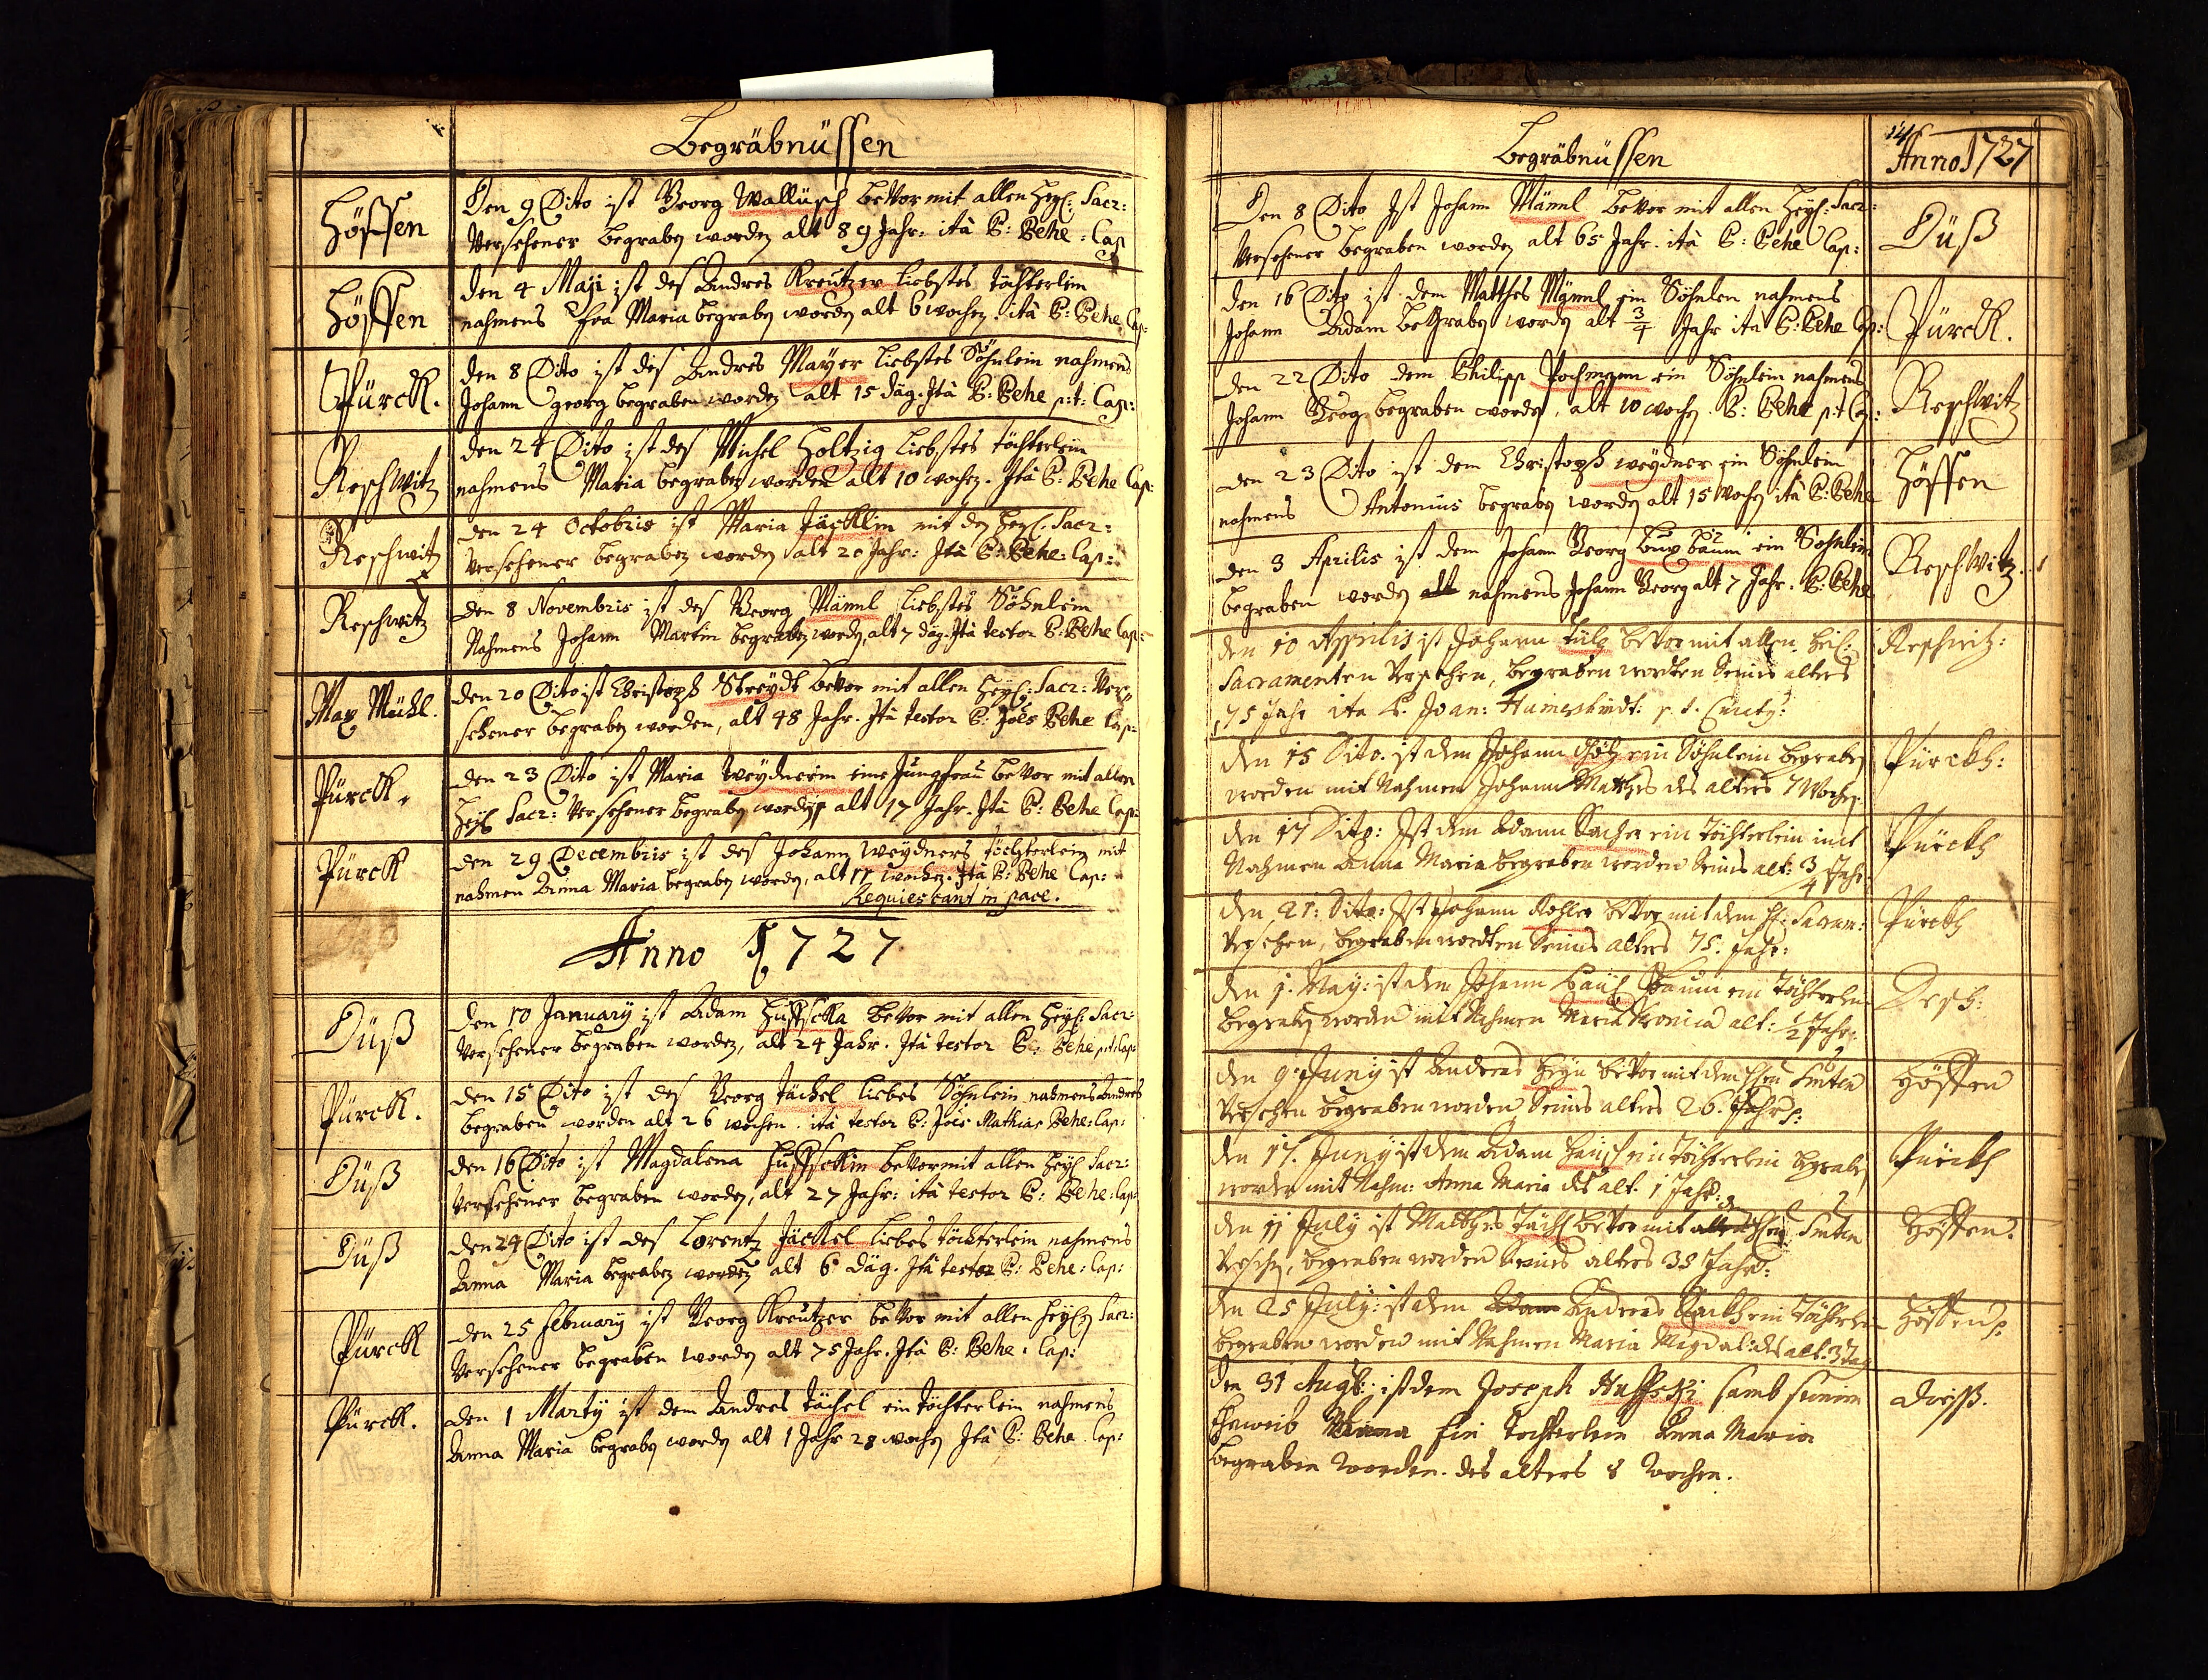 Begräbnüssen
Hösfen
Den 9 Dito ist Georg Wallüsch beVor mit allen Heyl: Sacr:
Versehener begraben worden alt 89 Jahr: ità P: Behe: Cap
Höffen
den 4 Maji ist des Andres Kreutzer liebstes töchterlein
nahmens Eva Maria begraben worden alt 6 wochen. ità P: Behe Cap:
Pürck.
den 8 Dito ist des Andres Mayer liebstes Söhnlein nahmens
Johann georg begraben worden alt 15 däg. Ità P: Behe p:t: Cap:
Reschwitz
den 24 Dito ist des Michel Holtzig liebstes töchterlein
nahmens Maria begraben worden alt 10 wochen. Ità P: Behe Cap:
Reschwitz
den 24 Octobris ist Maria Jäcklin mit den Heyl: Sacr:
Versehener begraben worden alt 20 Jahr: Ità P: Behe: Cap:
Reschwitz
den 8 Novembris ist des Georg Männl liebstes Söhnlein
Nahmens Johann Martin begraben worden, alt 7 däg. Ità testor P: Behe Cap:
Max Mühl.
den 20 Dito ist Christoph Streydt beVor mit allen Heyl: Sacr: Ver
sehener begraben worden, alt 48 Jahr. Ità testor P: Joës Behe Cap:
Pürck.
den 23 Dito ist Maria Weydnerin eine Jungfrau beVor mit allen
Heyl Sacr: Versehener begraben worden alt 17 Jahr. Ità P: Behe Cap:
Pürck
den 29 Decembris ist des Johann Weydners töchterlein mit
nahmen Anna Maria begraben worden, alt 11 wochen. Ità P: Behe Cap:
Requiescant in pace.
Anno 1727
Düß
den 10 January ist Adam Huffscka beVor mit allen Heyl: Sacr:
Versehener begraben worden, alt 24 Jahr. Ità testor P: Behe p:t: Cap:
Pürck.
den 15 Dito ist des Georg Jäckel liebes Söhnlein nahmens Andres
begraben worden alt 26 wochen. ità testor P: Joës Mathias Behe: Cap:
Düß
den 16 Dito ist Magdalena Huffsckin beVor mit allen Heyl Sacr:
Versehener begraben worden, alt 27 Jahr: ità testor P: Behe: Cap:
Düß
den 24 Dito ist des Lorentz Jäckel liebes töchterlein nahmens
Anna Maria begraben worden alt 6 däg. Ità testor P: Behe: Cap:
Pürck
den 25 February ist Georg Kreutzer beVor mit allen Heyl Sacr:
Versehener begraben worden alt 75 Jahr. Ità P: Behe. Cap:
Pürck.
den 1 Marty ist dem Andres Jächel ein töchterlein nahmens
Anna Maria begraben worden alt 1 Jahr 28 wochen Ità P: Behe. Cap:
Begräbnüssen
Anno 1727
Den 8 Dito Ist Johann Männl beVor mit allen Heyl: Sacr:
Versehener begraben worden alt 65 Jahr. ità P: Behe Cap:
Düß
den 16 Dito ist dem Matthes Männl ein Söhnlen nahmens
Johann Adam begraben worden alt 3/4 Jahr ità P: Behe Cap:
Pürck.
den 22 Dito dem Philipp Pochmann ein Söhnlein nahmens
Johann Georg begraben worden, alt 10 wochen. P: Behe p:t Cap:
Reschwitz
den 23 Dito ist dem Christoph weydner ein Söhnlein
nahmens Antonius begraben worden alt 15 Wochen ità P: Behe
Höffen
den 3 Aprilis ist dem Johann Georg bux baum ein Sohnlein
begraben worden alt nahmens Johann Georg alt 7 Jahr. P: Behe
Reschwitz.
den 10 Apprilis ist Johann beVor mit allen heil:
Sacramenten Versehen, begraben worden Seines alters
75 Jahr ita P. Joan: p. t.
Reschwitz:
den 15 Dito. ist dem Johann Götz ein Söhnlein begraben
worden mit Nahmen Johann Matthes des alters 7 Wochen.
Pürckh:
den 17 Dito: Ist dem Adam ein Töchterlein mit
Nahmen Anna Maria begraben worden Seines alt: 3/4 Jahr.
Pürckh
den 21: Dito: Ist Johann Kohler beVor mit dem hl: Sacram:
Versehen, begraben worden Seines alters 75. Jahr:
Pürckh
den 1. May: ist dem Johann Baum ein Töchterlein
begraben worden mit Nahmen Maria Veronica alt: 1/2 Jahr:
Resch:
den 9 Juny ist Andreas Heyn beVor mit dem
Versehen begraben worden Seines alters 26. Jahr:
Höffen
den 17. Juny ist dem Adam ein Töchterlein begraben
worden mit Nahm: Anna Maria des alt. 1 Jahr:
Pürckh
den 11 July ist Matthes Jächl beVor mit allen
Versehen, begraben worden Seines alters 38 Jahr:
Höffen.
den 25 July: ist dem Adam Andreas ein Töchterlein
begraben worden mit Nahmen Maria Magdal: des alt: 3 Tag
Höffen:
Den 31 Aug: ist dem Joseph Huffski samb seinem
Eheweib Anna Ein Tochterlein Anna Maria
begraben worden. des alters 8 Wochen.